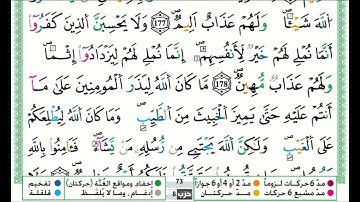 ٱللَّهَ شَيْـًٔا ۖ وَلَهُمْ عَذَابٌ أَلِيمٌ ۝١٧٧ وَلَا يَحْسِبَنَّ ٱلَّذِينَ كَفَرُوٓا۟
أَنَّمَا نُمْلِى لَهُمْ خَيْرٌ لِّأَنفُسِهِمْ ۖ إِنَّمَا نُمْلِى لَهُمْ لِيَزْدَادُوٓا۟ إِثْمًا ۖ
وَلَهُمْ عَذَابٌ مُّهِينٌ ۝١٧٨ مَّا كَانَ ٱللَّهُ لِيَذَرَ ٱلْمُومِنِينَ عَلَىٰ مَآ
أَنتُمْ عَلَيْهِ حَتَّىٰ يَمِيزَ ٱلْخَبِيثَ مِنَ ٱلطَّيِّبِ ۖ وَمَا كَانَ ٱللَّهُ لِيُطْلِعَكُمْ
عَلَى ٱلْغَيْبِ ۖ وَلَـٰكِنَّ ٱللَّهَ يَجْتَبِى مِن رُّسُلِهِۦ مَن يَشَآءُ ۖ فَـَٔامِنُوا۟ بِٱللَّهِ
مدّ 6 حركات لزوماً مدّ 2 أو 4 أو 6 جوازاً 73 إخفاء ومواقع الغُنَّة (حركتان) تفخيم
مدّ مشبع 6 حركات مدّ حركتان حزب 8 إدغام ، وما لا يُلفَظ قلقلة